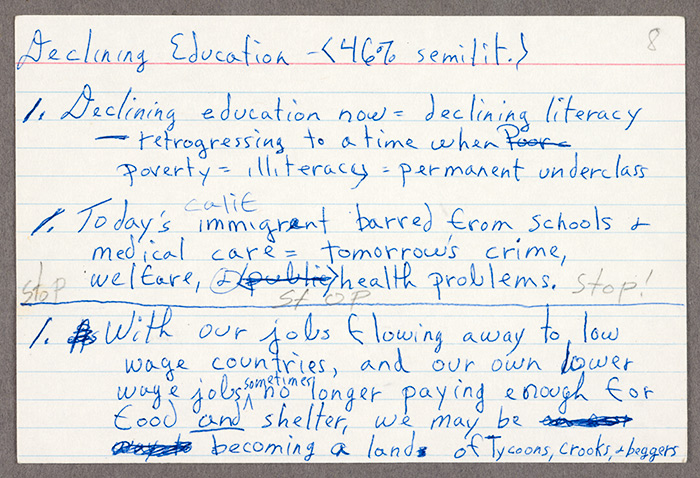 8
Declining Education -<46% semilit.>
1. Declining education now = declining literacy
— retrogressing to a time when Poor =
poverty = illiteracy = permanent underclass
calif
1. Today's immigrant barred from schools &
medical care = tomorrow's crime,
welfare, & <public> health problems. Stop!
Stop
Stop
1. With our jobs flowing away to low
wage countries, and our own lower
wage jobs sometimes no longer paying enough for
food and shelter, we may be
becoming a land of Tycoons, crooks, & beggers